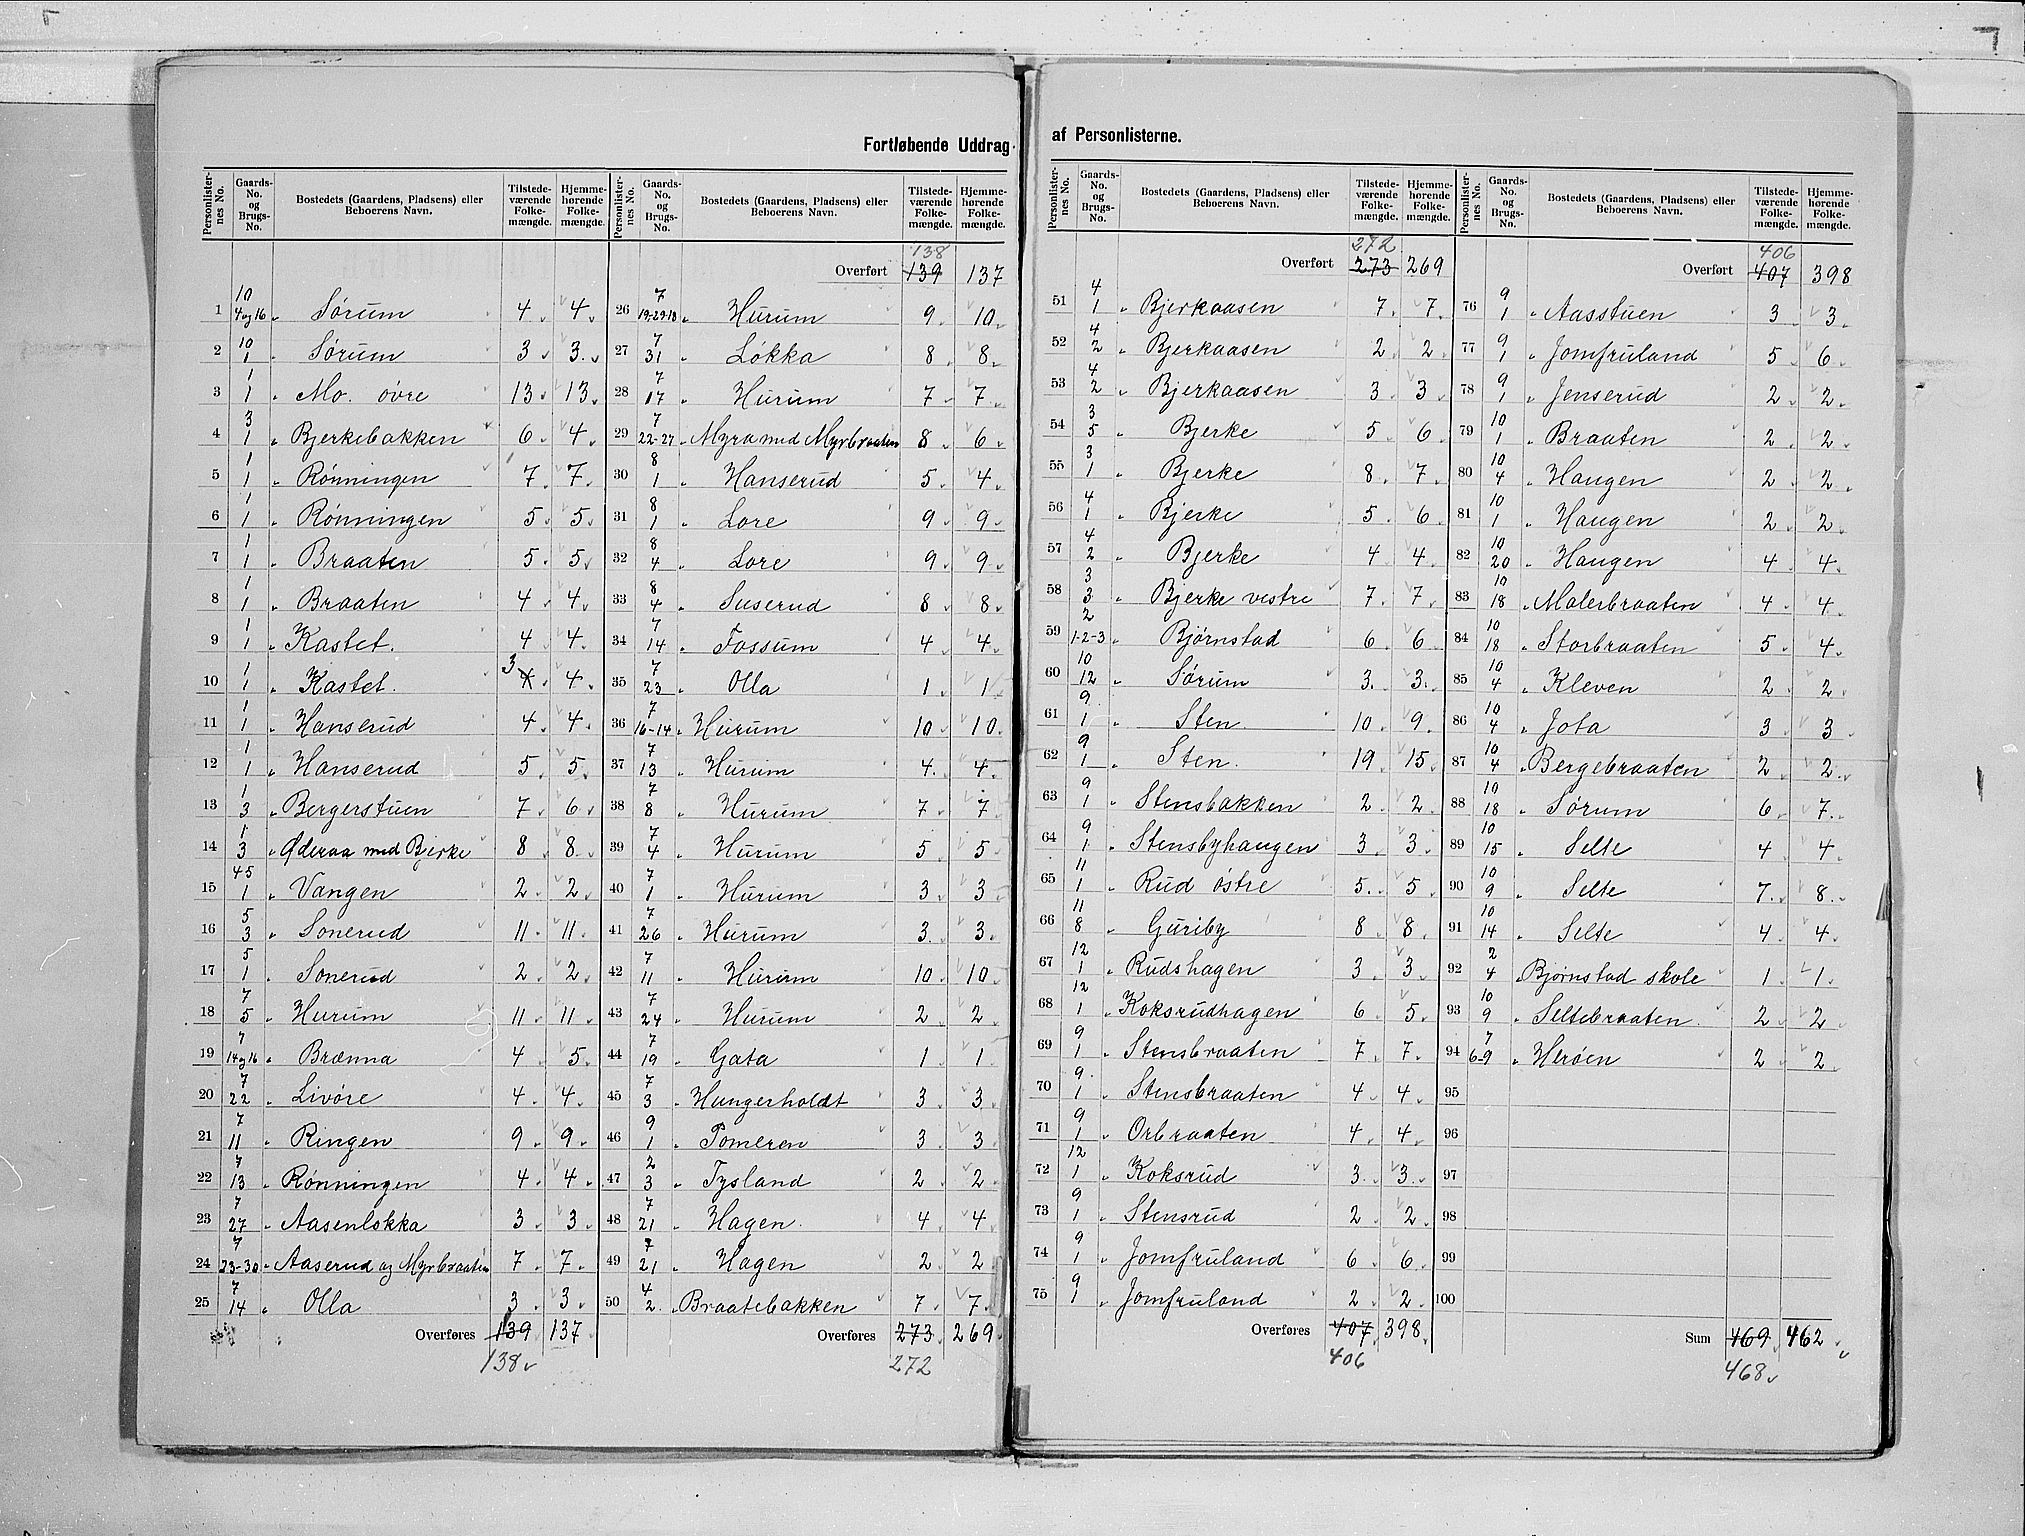 Fortløbende Uddrag af Personlisterne.
Personlister- nes No. | Gaards- No. og Brugs- No. | Bostedets (Gaardens, Pladsens) eller Beboerens Navn. | Tilstede- værende Folke- mængde. | Hjemme- hørende Folke- mængde.
1 10 4 og 16 „ Sørum 4 4
2 10 1 „ Sørum 3 3
3 1 1 „ Mo. övre 13 13
4 3 1 „ Bjerkebakken 6 4
5 1 1 „ Rönningen 7 7
6 1 1 „ Rönningen 5 5
7 1 1 „ Braaten 5 5
8 1 1 „ Braaten 4 4
9 1 1 „ Kastet. 4 4
10 1 1 „ Kastet. 3 4 4
11 1 1 „ Hanserud 4 4
12 1 1 „ Hanserud 5 5
13 1 3 „ Bergerstuen 7 6
14 1 3 „ Öderaa med Bjerke 8 8
15 45 1 „ Vangen 2 2
16 5 3 „ Sonerud 11 11
17 5 1 „ Sonerud 2 2
18 7 5 „ Hurum 11 11
19 7 14 og 16 „ Brænna 4 5
20 7 22 „ Livöre 4 4
21 7 11 „ Ringen 9 9
22 7 13 „ Rönningen 4 4
23 7 27 „ Aasenlokka 3 3
24 7 23-30 „ Aaserud og Myrbraaten 7 7
25 7 14 „ Olla 3 3
Overføres 139 137
138
Personlister- nes No. | Gaards- No. og Brugs- No. | Bostedets (Gaardens, Pladsens) eller Beboerens Navn. | Tilstede- værende Folke- mængde. | Hjemme- hørende Folke- mængde.
138
Overført 139 137
26 7 19-29-18 „ Hurum 9 10
27 7 31 „ Lökka 8 8
28 7 17 „ Hurum 7 7
29 7 22-27 „ Myra med Myrbraaten 8 6
30 8 1 „ Hanserud 5 4
31 8 1 „ Lore 9 9
32 8 4 „ Lore 9 9
33 8 4 „ Suserud 8 8
34 7 14 „ Fossum 4 4
35 7 23 „ Olla 1 1
36 7 16-14 „ Hurum 10 10
37 7 13 „ Hurum 4 4
38 7 8 „ Hurum 7 7
39 7 4 „ Hurum 5 5
40 7 1 „ Hurum 3 3
41 7 26 „ Hurum 3 3
42 7 11 „ Hurum 10 10
43 7 24 „ Hurum 2 2
44 7 19 „ Gata 1 1
45 7 3 „ Hungerholdt 3 3
46 9 1 „ Pomeren 3 3
47 2 3 „ Tysland 2 2
48 7 21 „ Hagen 4 4
49 7 21 „ Hagen 2 2
50 4 2 „ Braatebakken 7 7
Overføres 273 269
272
Personlister- nes No. | Gaards- No. og Brugs- No. | Bostedets (Gaardens, Pladsens) eller Beboerens Navn. | Tilstede- værende Folke- mængde. | Hjemme- hørende Folke- mængde.
272
Overført 273 269
51 4 1 „ Bjerkaasen 7 7
52 4 2 „ Bjerkaasen 2 2
53 4 2 „ Bjerkaasen 3 3
54 3 5 „ Bjerke 5 6
55 3 1 „ Bjerke 8 7
56 4 1 „ Bjerke 5 6
57 4 2 „ Bjerke 4 4
58 3 3 „ Bjerke vestre 7 7
59 2 1-2-3 „ Bjørnstad 6 6
60 10 12 „ Sørum 3 3
61 9 1 „ Sten. 10 9
62 9 1 „ Sten. 19 15
63 9 1 „ Stensbakken 2 2
64 9 1 „ Stensbyhaugen 3 3
65 11 1 „ Rud östre 5 5
66 11 8 „ Guriby 8 8
67 12 1 „ Rudshagen 3 3
68 12 1 „ Koksrudhagen 6 5
69 9 1 „ Stensbraaten 7 7
70 9 1 „ Stensbraaten 4 4
71 9 1 „ Orbraaten 4 4
72 12 1 „ Koksrud 3 3
73 9 1 „ Stensrud 2 2
74 9 1 „ Jomfruland 6 6
75 9 1 „ Jomfruland 2 2
Overføres 407 398
406
Personlister- nes No. | Gaards- No. og Brugs- No. | Bostedets (Gaardens, Pladsens) eller Beboerens Navn. | Tilstede- værende Folke- mængde. | Hjemme- hørende Folke- mængde.
406
Overført 407 398
76 9 1 „ Aasstuen 3 3
77 9 1 „ Jomfruland 5 6
78 9 1 „ Jenserud 2 2
79 10 1 „ Braaten 2 2
80 10 4 „ Haugen 2 2
81 10 1 „ Haugen 2 2
82 10 20 „ Haugen 4 4
83 10 18 „ Malerbraaten 4 4
84 10 18 „ Storbraaten 5 4
85 10 4 „ Kleven 2 2
86 10 4 „ Jota 3 3
87 10 4 „ Bergebraaten 2 2
88 10 18 „ Sørum 6 7
89 10 15 „ Selte 4 4
90 10 9 „ Selte 7 8
91 10 14 „ Selte 4 4
92 2 4 „ Bjørnstad skole 1 1
93 10 9 „ Seltebraaten. 2 2
94 7 6-9 „ Heröen 2 2
95
96
97
98
99
100
Sum 469 462
468